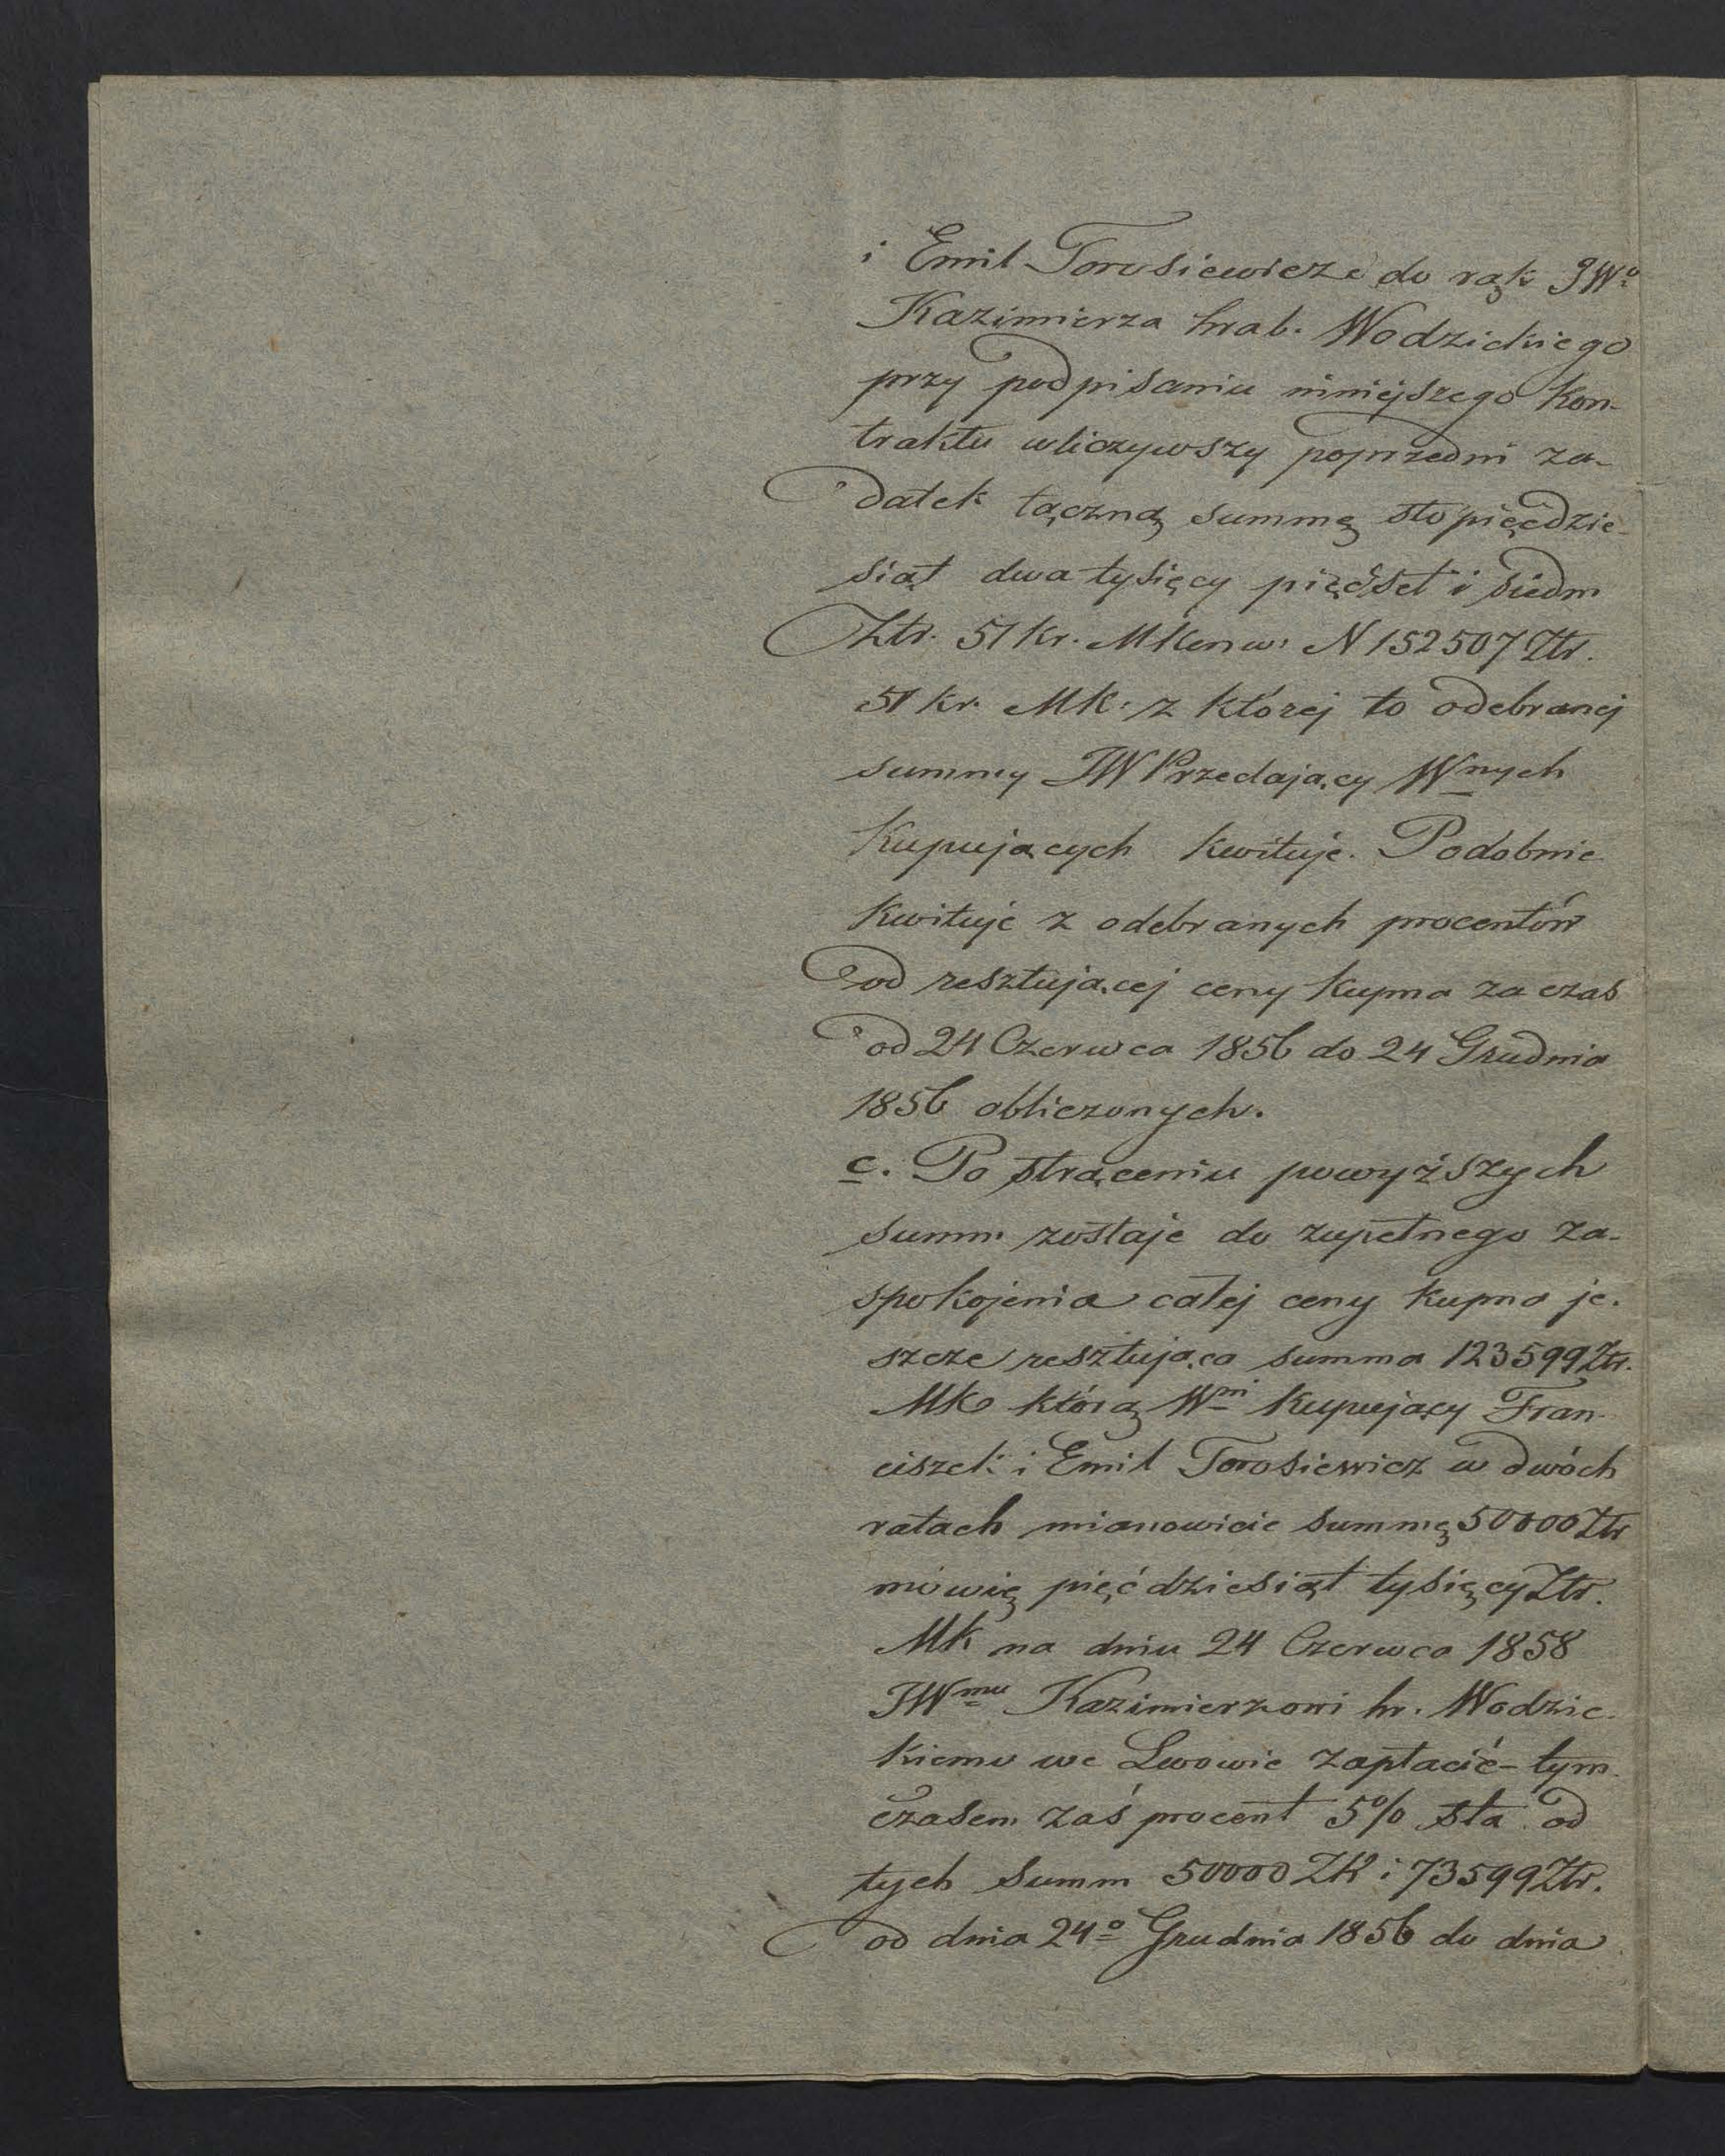 i Emil Torosiewicze do rąk JWo
Kazimierza hrab. Wodzickiego
przy podpisaniu niniejszego Kon-
traktu wliczywszy poprzedni za-
datek łączną summę sto pięćdzie-
siąt dwa tysięcy pięćset i siedm
Ztr. 51 kr. MKonw: N 152507 Ztr.
51 kr. MK: z której to odebranej
summy JW Przedający Wnych
Kupujących kwituje. Podobnie
Kwituje z odebranych procentów
od resztującej ceny kupna za czas
od 24 Czerwca 1856 do 24 Grudnia
1856 obliczonych.
c. Po strąceniu powyższych
summ zostaje do zupełnego za-
spokojenia całej ceny kupna je-
szcze resztująca summa 123599 Ztr.
MK którą Wni Kupujący Fran-
ciszek i Emil Torosiewicz w dwóch
ratach mianowicie summę 50000 Ztr
mówię pięćdziesiąt tysięcy Ztr.
MK na dniu 24 Czerwca 1858
JWmu Kazimierzowi hr. Wodzic-
kiemu we Lwowie zapłacić - tym
czasem zaś procent 5% sta od
tych summ 50000 ZR i 73599 Ztr.
od dnia 24o Grudnia 1856 do dnia